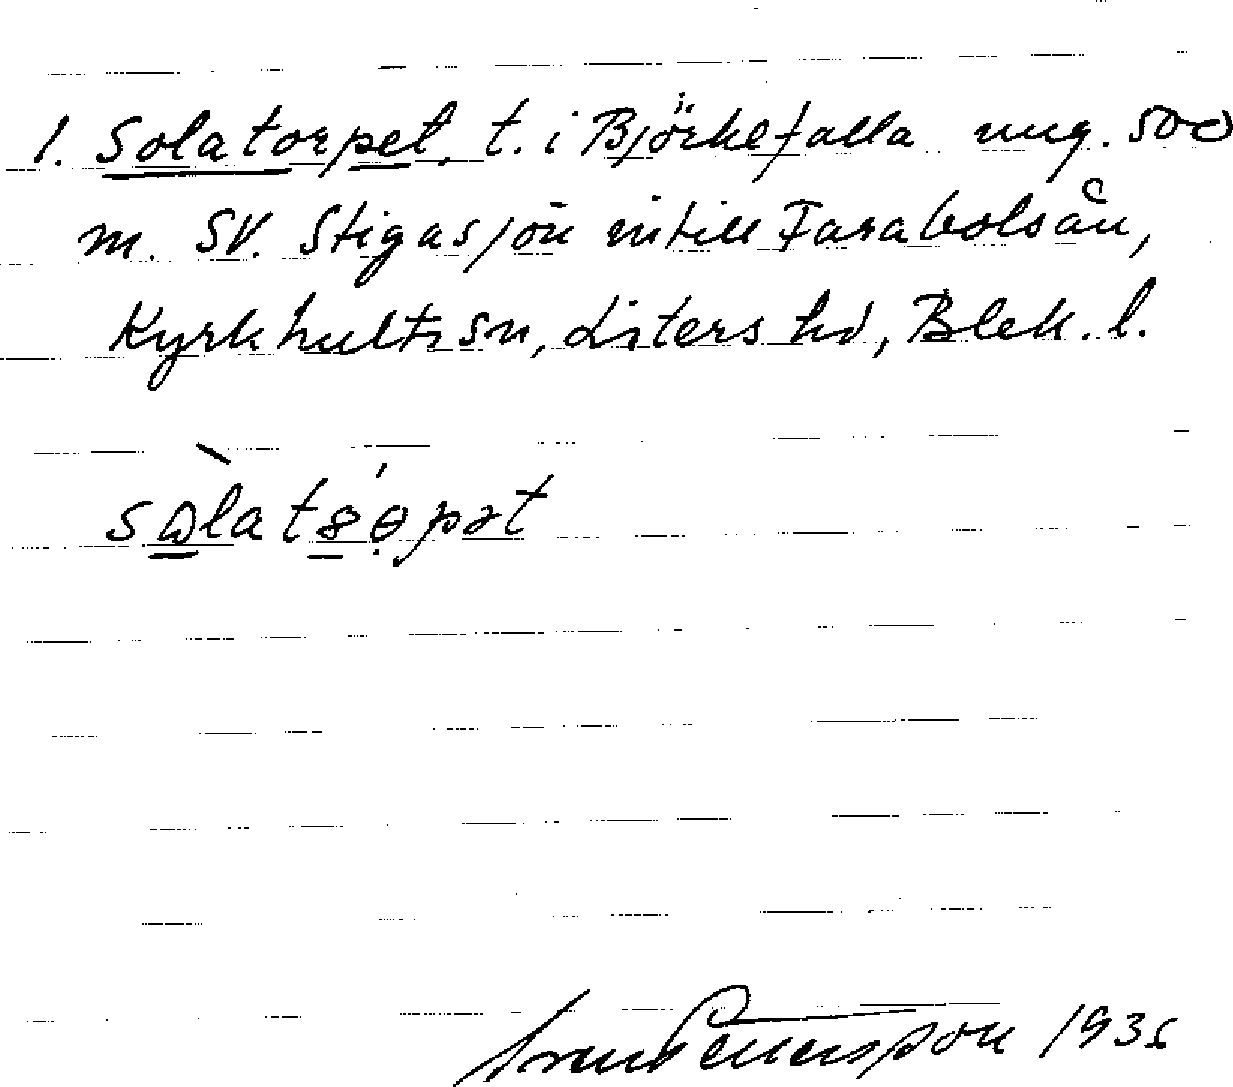 1. Solatorpet, t. i Björkefalla ung. 500
m. SV. Stigasjön intill Farabolsån,
Kyrkhults sn, Listers hd, Blek. l.
1935